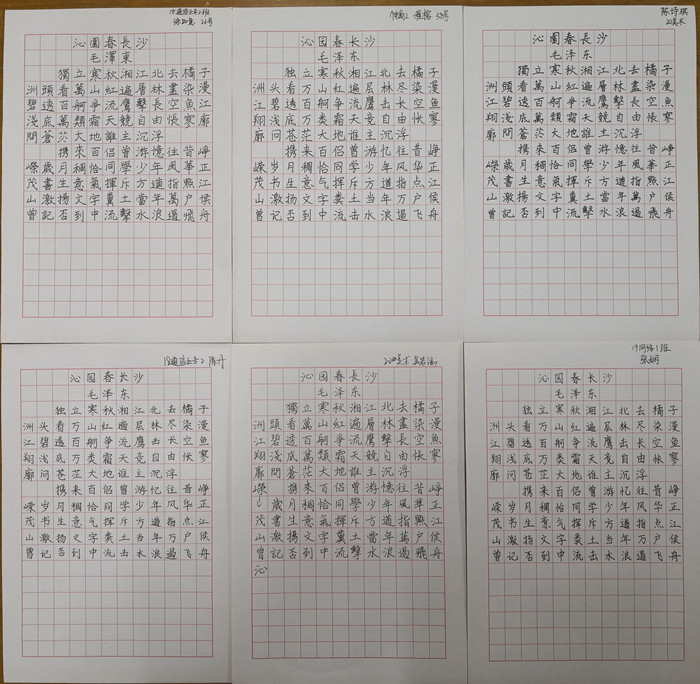 沁園春長沙
毛澤東
獨立寒秋湘江北去橘子
洲頭看萬山紅遍層林盡染漫
江碧透百舸爭流鷹擊長空魚
翔淺底萬類霜天競自由悵寥
廓問蒼茫大地誰主沉浮
携來百侶曾游憶往昔崢
嶸歲月稠恰同學少年風華正
茂書生意氣揮斥方遒指點江
山激揚文字糞土當年萬户侯
曾記否到中流擊水浪遏飛舟
沁园春长沙
毛泽东
独立寒秋湘江北去橘子
洲头看万山红遍层林尽染漫
江碧透百舸争流鹰击长空鱼
翔浅底万类霜天竞自由怅寥
廓问苍茫大地谁主沉浮
携来百侣曾游忆往昔峥
嵘岁月稠恰同学少年风华正
茂书生意气挥斥方遒指点江
山激扬文字粪土当年万户侯
曾记否到中流击水浪遏飞舟
陈诗琪
沁園春長沙
毛泽东
獨立寒秋湘江北去橘子
洲頭看萬山紅遍層林盡染漫
江碧透百舸爭流鷹擊長空魚
翔淺底萬類霜天競自由悵寥
廓問蒼茫大地誰主沉浮
携來百侶曾游憶往昔崢
嶸歲月稠恰同學少年風華正
茂書生意氣揮斥方遒指點江
山激揚文字糞土當年萬户侯
曾記否到中流擊水浪遏飛舟
沁园春长沙
毛泽东
独立寒秋湘江北去橘子
洲头看万山红遍层林尽染漫
江碧透百舸争流鹰击长空鱼
翔浅底万类霜天竞自由怅寥
廓问苍茫大地谁主沉浮
携来百侣曾游忆往昔峥
嵘岁月稠恰同学少年风华正
茂书生意气挥斥方遒指点江
山激扬文字粪土当年万户侯
曾记否到中流击水浪遏飞舟
沁园春長沙
毛泽东
獨立寒秋湘江北去橘子
洲頭看萬山紅遍層林盡染漫
江碧透百舸爭流鷹擊長空魚
翔淺底萬類霜天競自由悵寥
廓問蒼茫大地誰主沉浮
携來百侶曾游憶往昔崢
嶸歲月稠恰同學少年風華正
茂書生意氣揮斥方遒指點江
山激揚文字糞土當年萬户侯
曾記否到中流擊水浪遏飛舟
沁
张娴
沁园春长沙
毛泽东
独立寒秋湘江北去橘子
洲头看万山红遍层林尽染漫
江碧透百舸争流鹰击长空鱼
翔浅底万类霜天竞自由怅寥
廓问苍茫大地谁主沉浮
携来百侣曾游忆往昔峥
嵘岁月稠恰同学少年风华正
茂书生意气挥斥方遒指点江
山激扬文字粪土当年万户侯
曾记否到中流击水浪遏飞舟